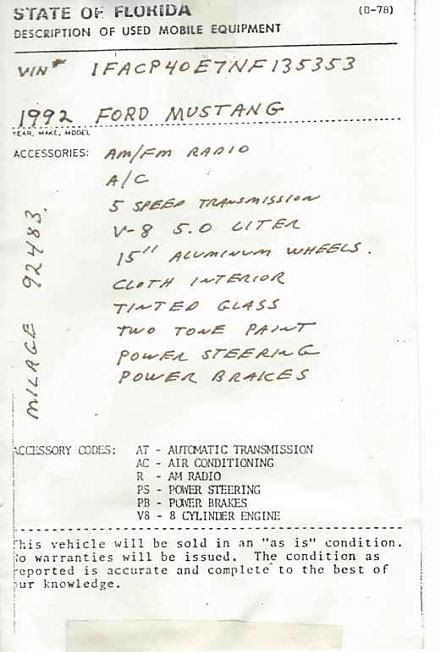 STATE OF FLORIDA (D-78)
DESCRIPTION OF USED MOBILE EQUIPMENT
VIN# 1FACP40E7NF135353
1992 FORD MUSTANG
YEAR, MAKE, MODEL
ACCESSORIES: Am/Fm RADIO
A/C
5 SPEED TRANSMISSION
V-8 5.0 LITER
15" ALUMINUM WHEELS.
CLOTH INTERIOR
TINTED GLASS
TWO TONE PAINT
POWER STEERING
POWER BRAKES
MILAGE 92483.
ACCESSORY CODES: AT - AUTOMATIC TRANSMISSION
AC - AIR CONDITIONING
R - AM RADIO
PS - POWER STEERING
PB - POWER BRAKES
V8 - 8 CYLINDER ENGINE
This vehicle will be sold in an "as is" condition.
No warranties will be issued. The condition as
reported is accurate and complete to the best of
our knowledge.